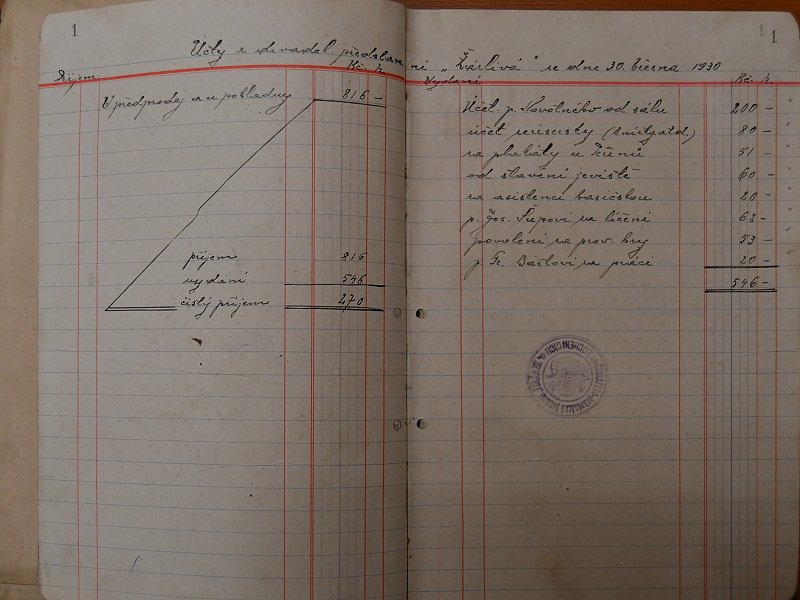 1
Účty z divadel. představení „Žárlivá" ze dne 30. března 1930
Příjem.
Kč. h.
V předprodeji a u pokladny 816 –
příjem 816
vydání 546
čistý příjem 270
1
Vydání
Kč. h.
Účet p. Novotného od sálu 200 –
účet režisérský 80 –
za plakáty u 51 –
od stavění jeviště 60 –
za asistenci hasičskou 20 –
p. Jos. Šípovi za líčení 62 –
povolení za prov. hry 53 –
p. Fr. Bartovi za práci 20 –
546 –